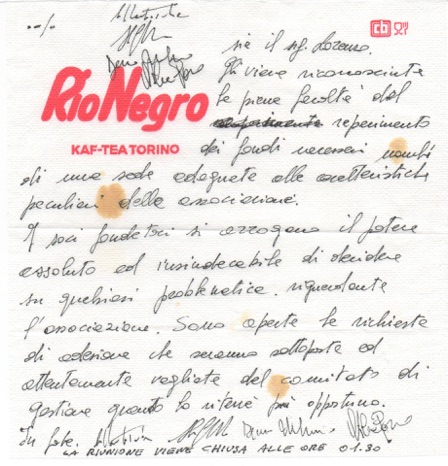 ./.
sia il sig. Lozano.
Gli viene riconosciuta
la piena facoltà del
reperimento
RioNegro
KAF-TEA TORINO
dei fondi necessari nonché
di una sede adeguata alle caratteristiche
peculiari della associazione.
I soci fondatori si arrogano il potere
assoluto ed insindacabile di decidere
su qualsiasi problematica riguardante
l'associazione. Sono aperte le richieste
di adesione che saranno sottoposte ed
attentamente vagliate dal comitato di
gestione quanto lo riterrà più opportuno.
In fede.
LA RIUNIONE VIENE CHIUSA ALLE ORE 01.30